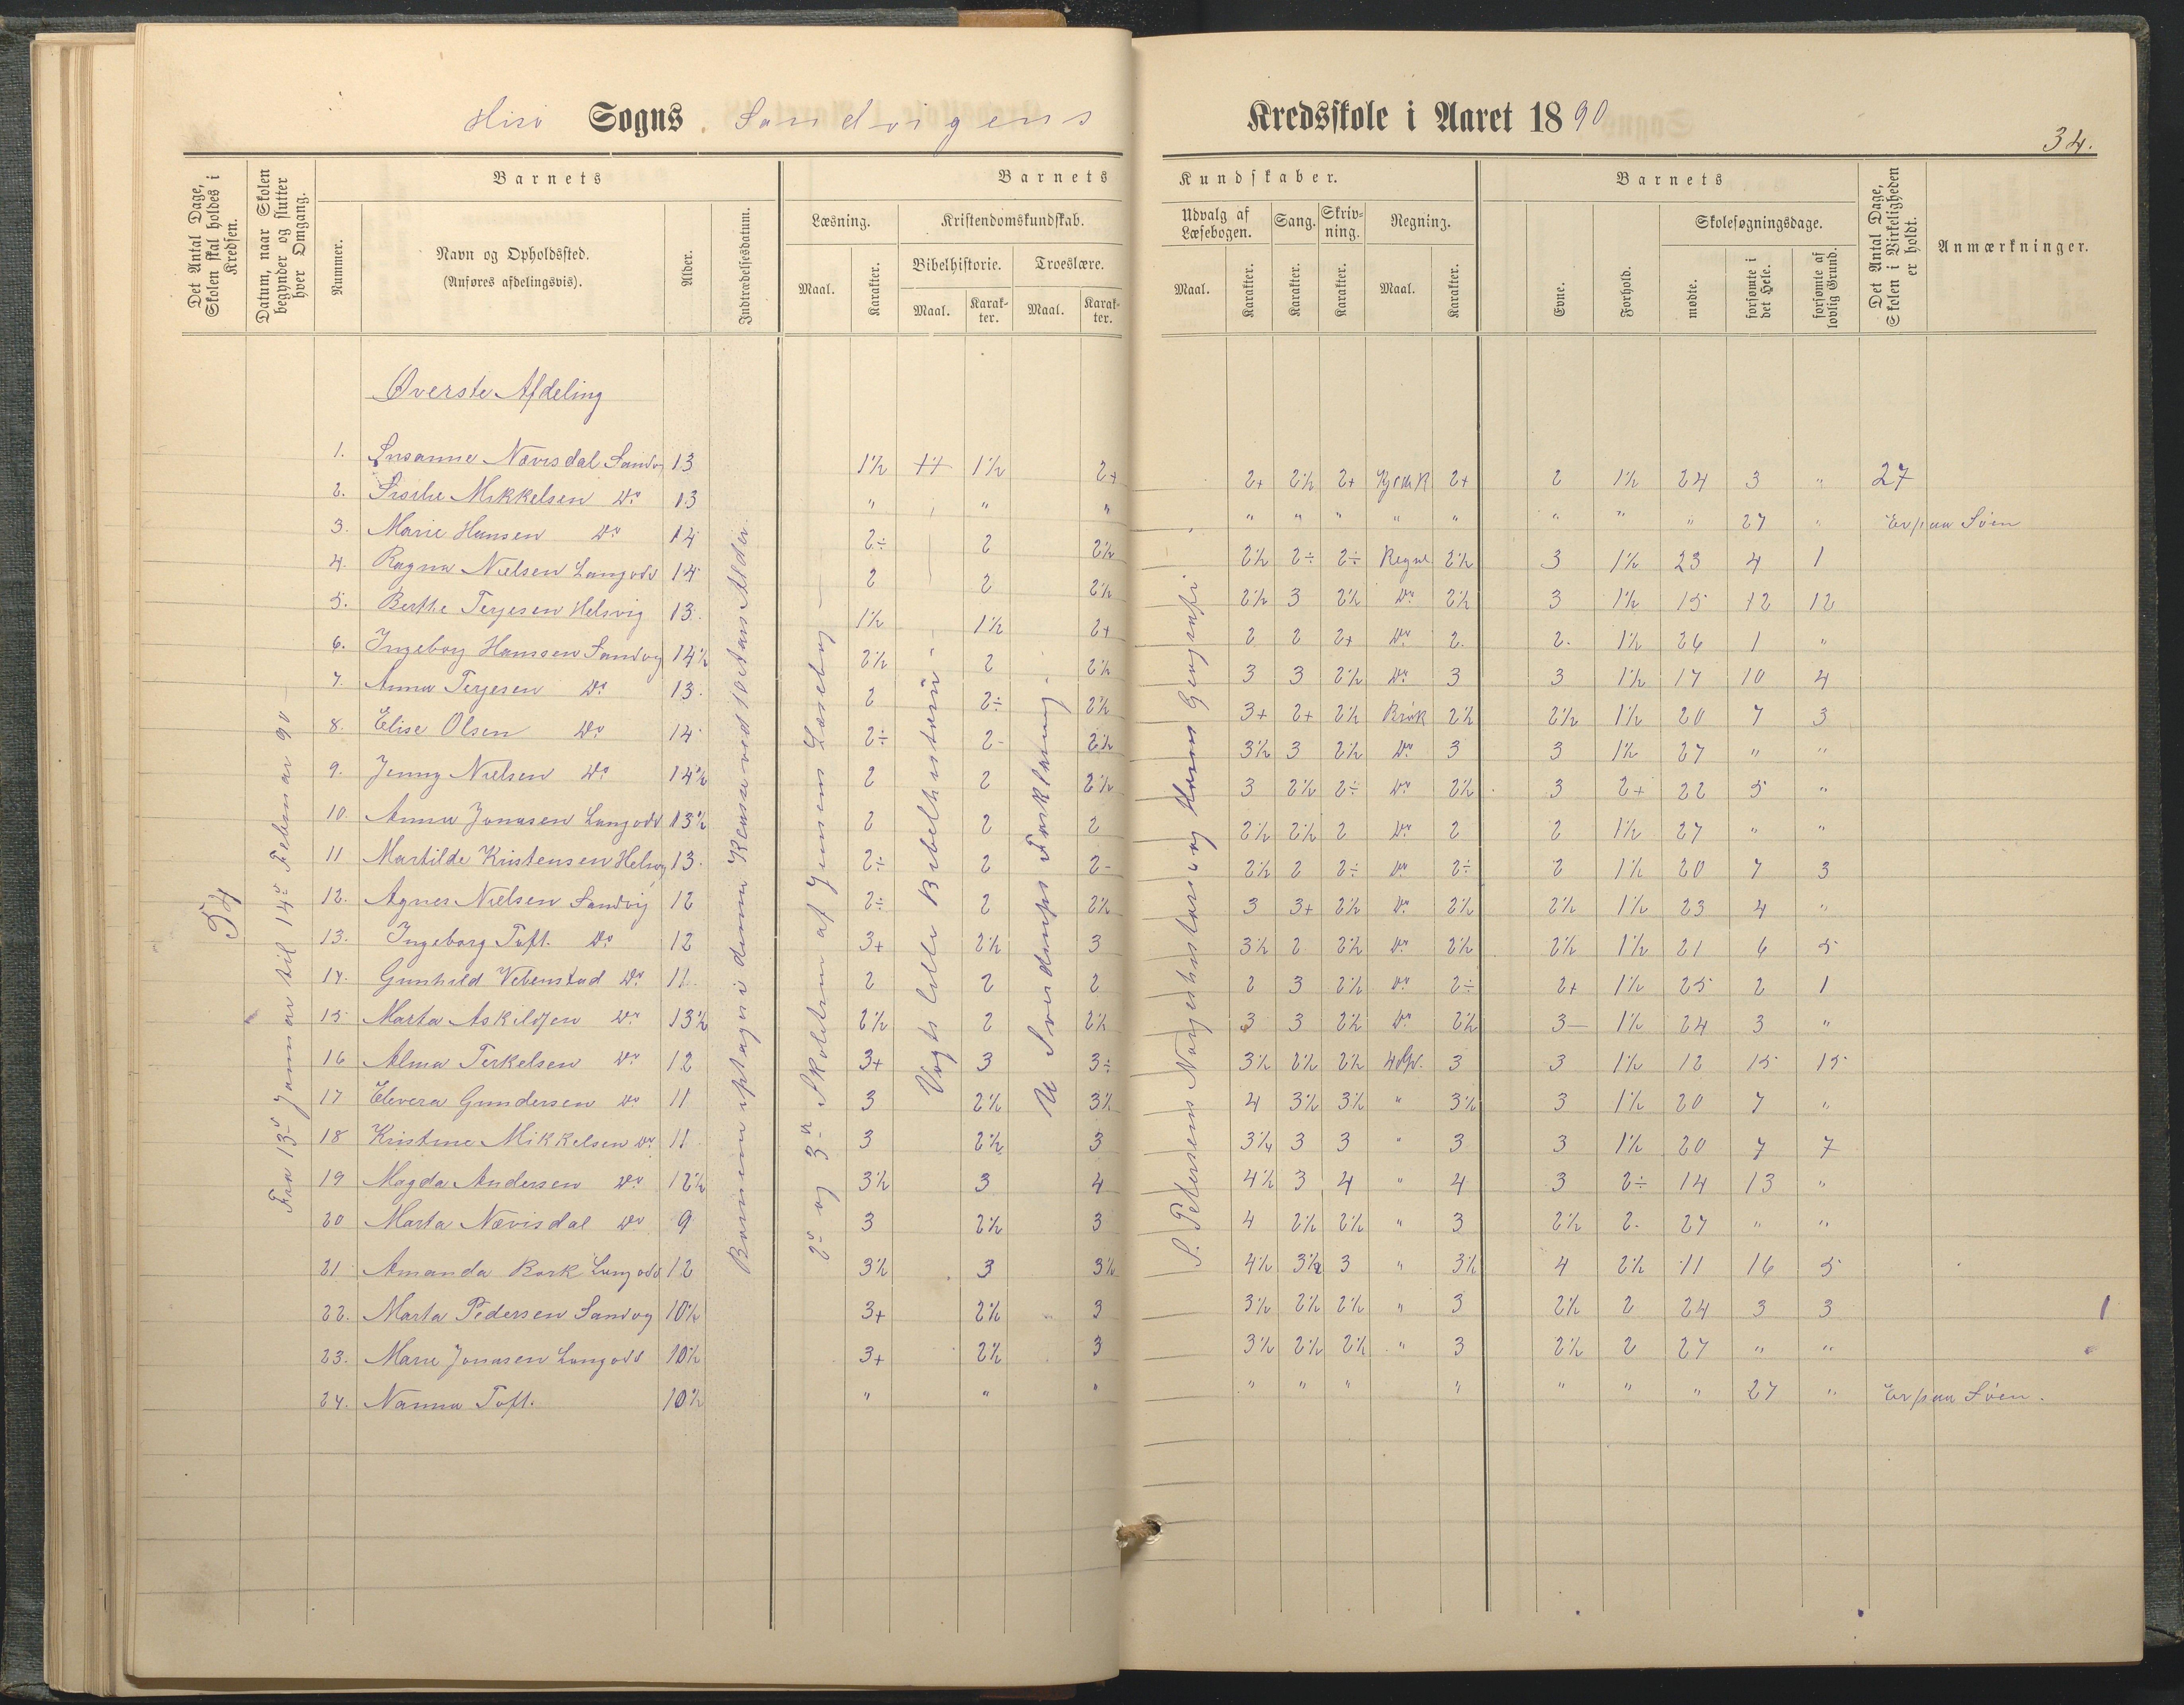 Hisö Sogns Sandvigens Kredsskole i Aaret 1890
34.
Det Antal Dage, Skolen skal holdes i Kredsen.
Datum, naar Skolen begynder og slutter hver Omgang.
Barnets
Nummer.
Navn og Opholdssted.
(Anføres afdelingsvis).
Alder.
Indtrædelsesdatum.
Barnets Kundskaber.
Læsning.
Maal.
Karakter.
Kristendomskundskab.
Bibelhistorie.
Maal.
Karakter.
Troeslære.
Maal.
Karakter.
Udvalg af Læsebogen.
Maal.
Karakter.
Sang.
Karakter.
Skrivning.
Karakter.
Regning.
Maal.
Karakter.
Barnets
Evne.
Forhold.
Skolesøgningsdage.
mødte.
forsømte i det Hele.
forsømte af lovlig Grund.
Det Antal Dage, Skolen i Virkeligheden er holdt.
Anmærkninger.
54
Fra 13de Januar til 14de Februar 90
Børnene optages i denne Klasse ved 10 Aars Alder
2den og 3die Skoletrin af Jensens Læsebog
Vogts lille Bibelhistorie
U Sverdrups Forklaring
S. Petersens Norgeshistorie og Horns Geografi
Øverste Afdeling
1. Susanne Nævisdal Sandvg 13 1½ 1½ 2+ 2+ 2½ 2+ 2+ 2 1½ 24 3 " 27
2. Sisilie Mikkelsen Do 13 " " " " " " " " " " " 27 " Er paa Söen
3. Marie Hansen Do 14 2÷ 2 2½ 2½ 2÷ 2÷ Regul 2½ 3 1½ 23 4 1
4. Ragna Nielsen Langods 14 2 2 2½ 2½ 3 2½ Do 2½ 3 1½ 15 12 12
5. Berthe Terjesen Helsvig 13. 1½ 1½ 2+ 2 2 2+ Do 2. 2. 1½ 26 1 "
6. Ingeborg Hanssen Sandvg 14½ 2½ 2 2½ 3 3 2½ Do 3 3 1½ 17 10 4
7. Anna Terjesen Do 13. 2 2÷ 2½ 3+ 2+ 2½ Brök 2½ 2½ 1½ 20 7 3
8. Elise Olsen Do 14 2÷ 2- 2½ 3½ 3 2½ Do 3 3 1½ 27 " "
9. Jenny Nielsen Do 14½ 2 2 2½ 3 2½ 2÷ Do 2½ 3 2+ 22 5 "
10. Anna Jonasen Langods 13½ 2 2 2 2½ 2½ 2 Do 2 2 1½ 27 " "
11 Martilde Kristensen Helsvg 13. 2÷ 2 2- 2½ 2 2÷ Do 2÷ 2 1½ 20 7 3
12. Agnes Nielsen Sandvig 12 2÷ 2 2½ 3 3+ 2½ Do 2½ 2½ 1½ 23 4 "
13. Ingeborg Toft. Do 12 3+ 2½ 3 3½ 2 2½ Do 2½ 2½ 1½ 21 6 5
14. Gunhild Vebenstad Do 11. 2 2 2 2 3 2½ Do 2÷ 2+ 1½ 25 2 1
15 Marta Askilsen Do 13½ 2½ 2 2½ 3 3 2½ Do 2½ 3- 1½ 24 3 "
16 Alma Terkelsen Do 12 3+ 3 3÷ 3½ 2½ 2½ 4 Sp. 3 3 1½ 12 15 15
17 Elevera Gundersen Do 11 3 2½ 3½ 4 3½ 3½ " 3½ 3 1½ 20 7 "
18 Kristine Mikkelsen Do 11 3 2½ 3 3½ 3 3 " 3 3 1½ 20 7 7
19 Magda Andersen Do 12½ 3½ 3 4 4½ 3 4 " 4 3 2÷ 14 13 "
20 Marta Nævisdal Do 9 3 2½ 3 4 2½ 2½ " 3 2½ 2. 27 " "
21 Amanda Bork Langods 12 3½ 3 3½ 4½ 3½ 3 " 3½ 4 2½ 11 16 5
22. Marta Pedersen Sandvg 10½ 3+ 2½ 3 3½ 2½ 2½ " 3 2½ 2 24 3 3
23. Marie Jonasen Langods 10½ 3+ 2½ 3 3½ 2½ 2½ " 3 2½ 2 27 " "
24. Nanna Toft. 10½ " " " " " " " " " " 27 " Er paa Söen.